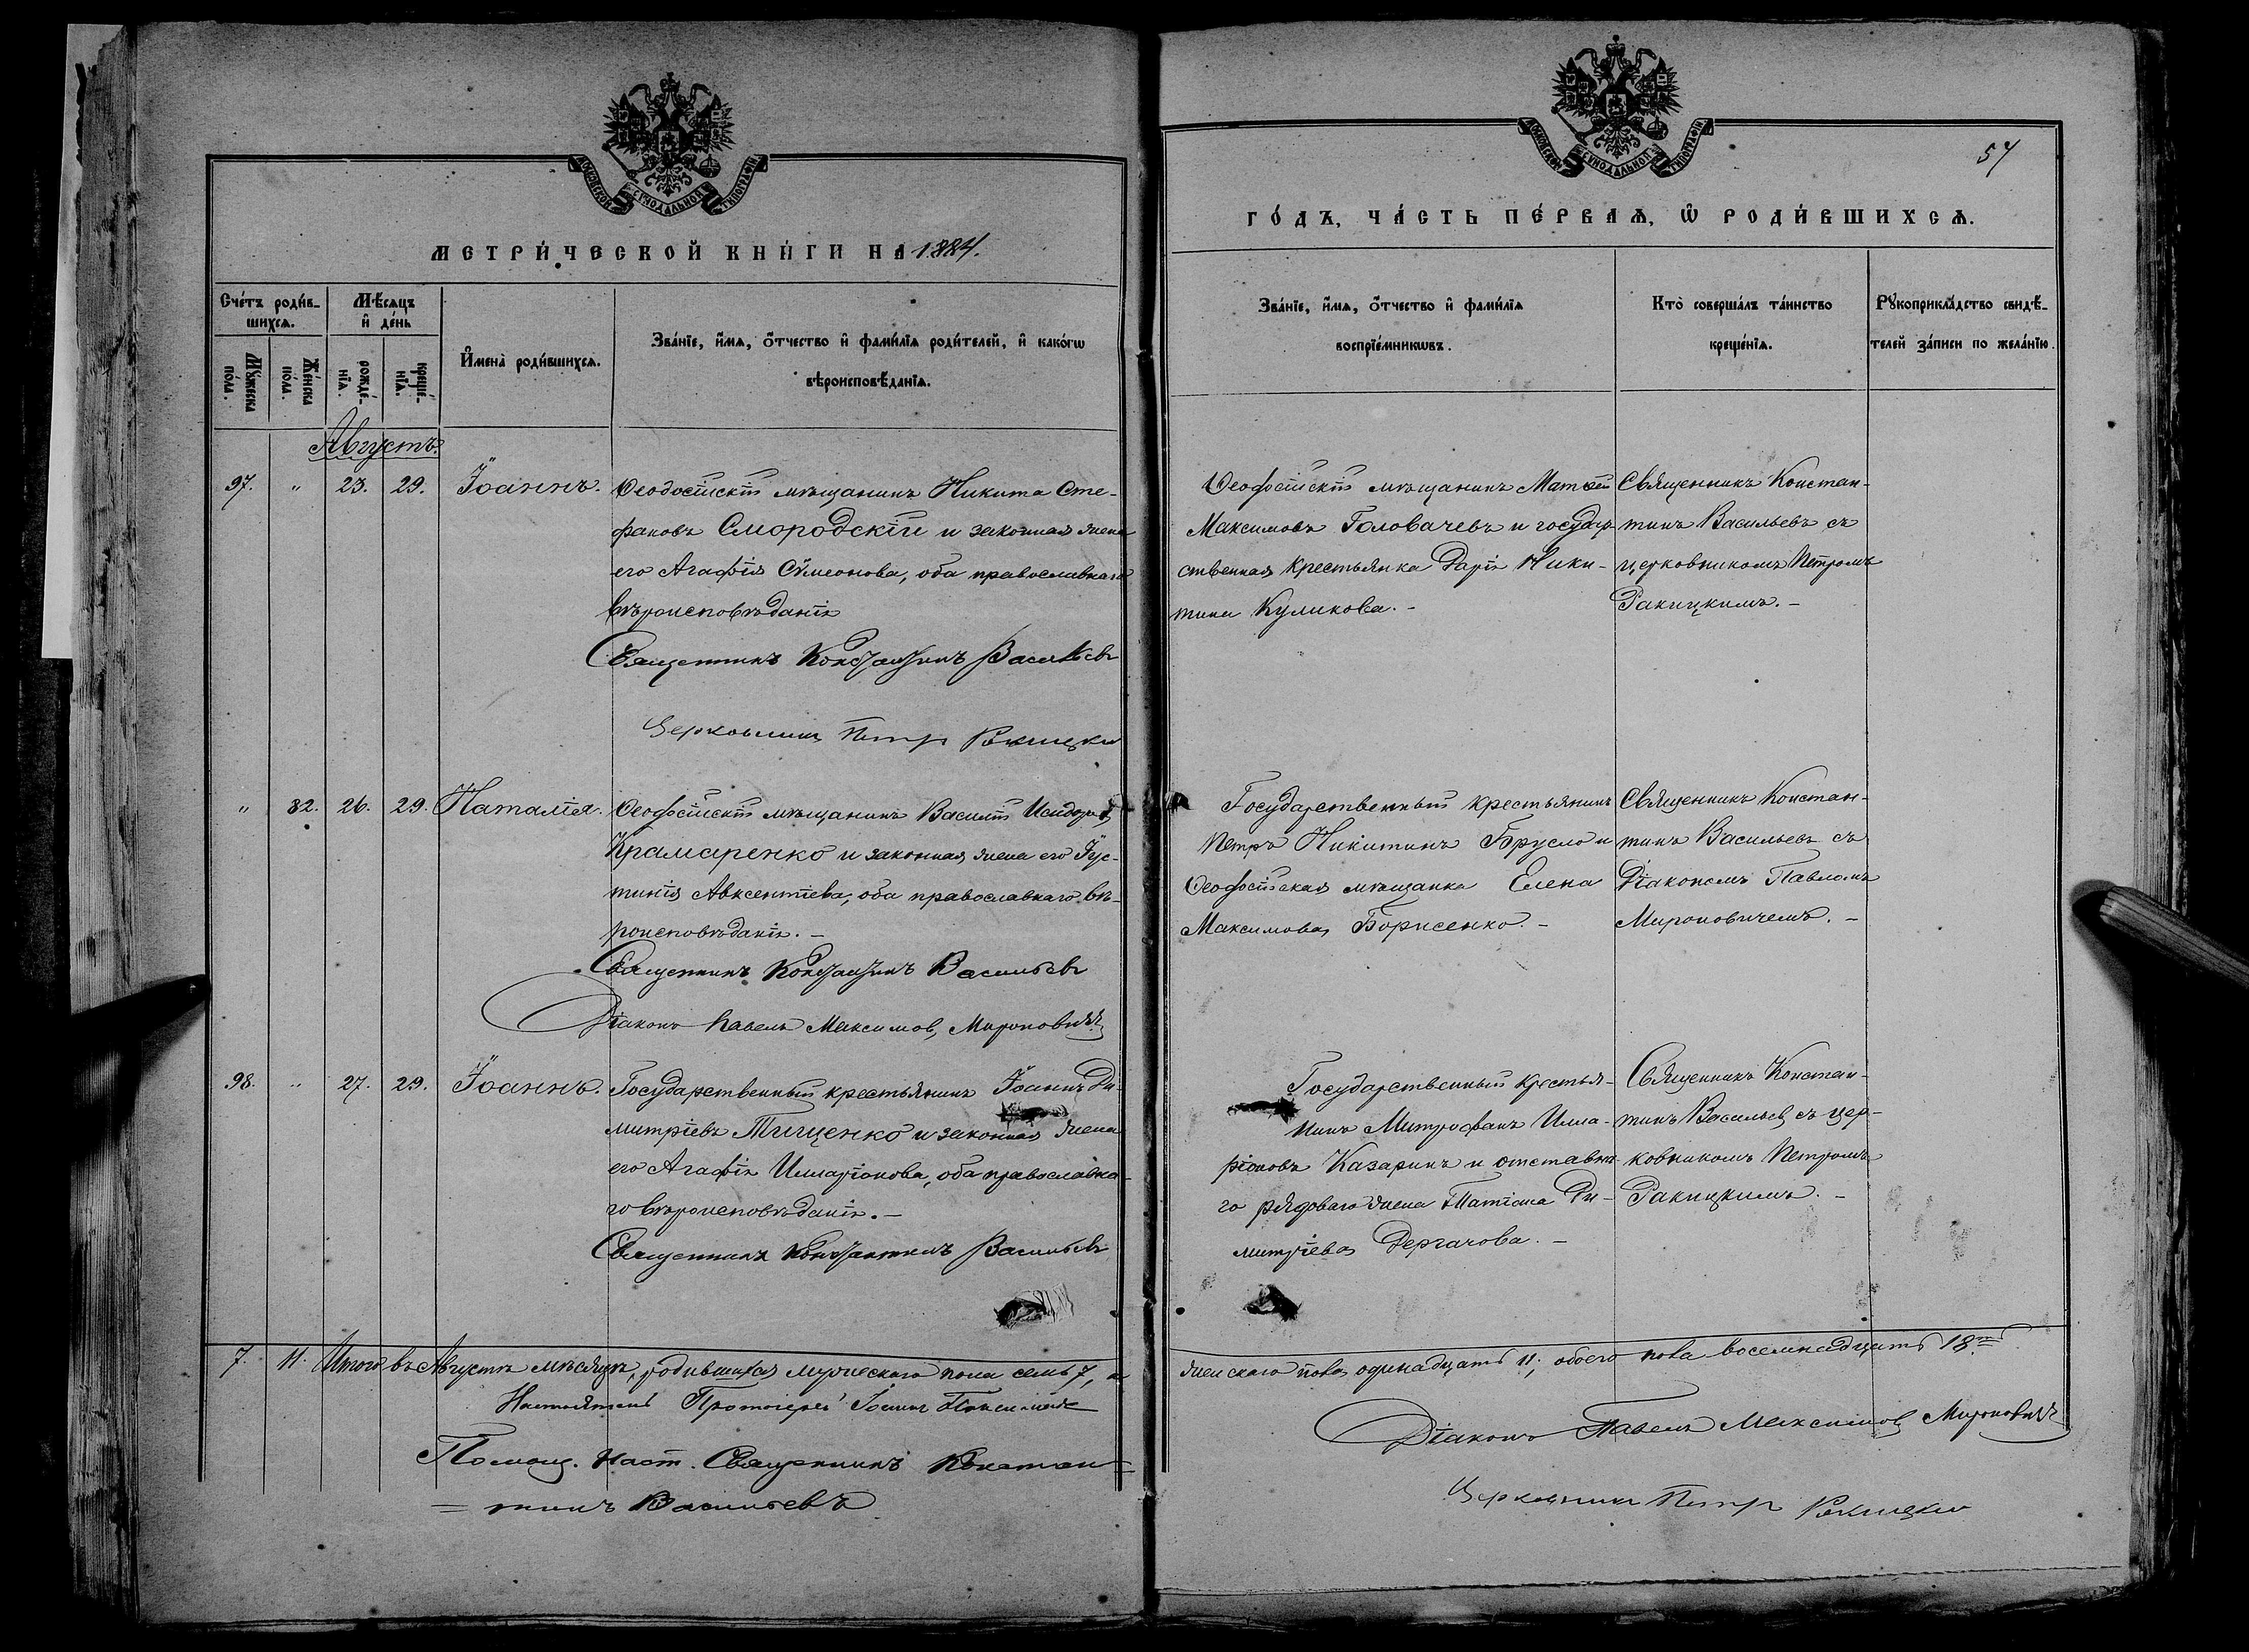 МОСКОВСКОЙ СУНОДАЛЬНОЙ ТИПОГРАФІИ
МЕТРИ́ЧЕСКОЙ КНИ́ГИ НА 1884.
Сче́тъ роди́в-
шихсѧ.
Мѣ́сѧцъ
и҆ де́нь
Мꙋ́жеска
по́ла.
Же́нска
по́ла.
рожде́-
нїѧ.
креще́-
нїѧ.
И҆мена̀ роди́вшихсѧ.
Зва́нїе, и҆́мѧ, ѻ҆́тчество и҆ фами́лїѧ роди́телей, и҆ како́гѡ
вѣроисповѣ́данїѧ.
Августъ.
97. " 23. 29. Іоаннъ.
Ѳеодосійскій мѣщанинъ Никита Сте-
фановъ Смородскій и законная жена
его Агафія Сѵмеонова, оба православнаго
вѣроисповѣданія
Священникъ Константинъ Васильевъ
Церковник Петр Ракицкій
" 82. 26. 29. Наталія.
Ѳеодосійскій мѣщанинъ Василій Исидоров
Крамаренко и законная жена его Іус-
тинія Авксентіева, оба православнаго вѣ-
роисповѣданія. -
Священникъ Константинъ Васильевъ
Діаконъ Павелъ Максимов, Мироновичъ
98. " 27. 29. Іоаннъ.
Государственный крестьянинъ Іоаннъ Ди-
митріевъ Тищенко и законная жена
его Агафія Илларіонова, оба православна-
го вѣроисповѣданія. -
Священникъ Константинъ Васильевъ
7. 11. Итого въ Августѣ мѣсяцѣ, родившихся мужескаго пола семь 7, и
Настоятель Протоіерей Іоаннъ
Помощ. Наст. Священникъ Констан=
=тинъ Васильевъ
МОСКОВСКОЙ СУНОДАЛЬНОЙ ТИПОГРАФІИ
57
ГО́ДЪ, ЧА́СТЬ ПЕ́РВАѦ, Ѡ҆ РОДИ́ВШИХСѦ.
Зва́нїе, и҆́мѧ, ѻ҆́тчество и҆ фами́лїѧ
воспрїе́мникѡвъ.
Кто̀ соверша́лъ та́инство
креще́нїѧ.
Рꙋкоприкла́дство свидѣ́-
телей за́писи по жела́нїю.
Ѳеодосійскій мѣщанинъ Матѳей
Максимовъ Головачевъ и государ-
ственная крестьянка Дарія Ники-
тина Куликова. -
Священникъ Констан-
тинъ Васильевъ съ
церковникомъ Петромъ
Ракицкимъ. -
Государственный крестьянинъ
Петръ Никитинъ Брусло и
Ѳеодосійская мѣщанка Елена
Максимова Борисенко. -
Священникъ Констан-
тинъ Васильевъ съ
Діакономъ Павломъ
Мироновичемъ. -
Государственный крестья-
нинъ Митрофанъ Илла-
ріоновъ Казаринъ и отставна-
го рядоваго жена Татіана Ди-
митріева Дергачова. -
Священникъ Констан-
тинъ Васильев съ цер-
ковникомъ Петромъ
Ракицкимъ. -
женскаго пола одинадцать 11, обоего пола восемнадцать 18.
Діаконъ Павелъ Максимов Мироновичъ
Церковник Петр Ракицкій